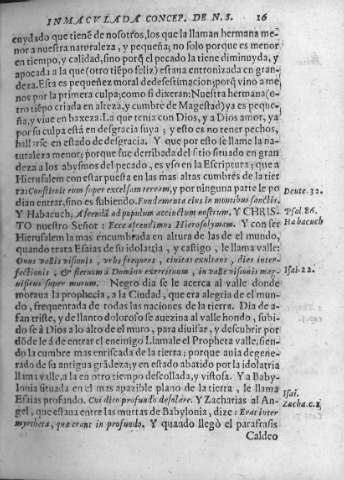 INMACVLADA CONCEP. DE N. S. 16
cuydado que tienẽ de nosotros, los que la llaman hermana me-
nor a nuestra naturaleza, y pequeña; no solo porque es menor
en tiempo, y calidad, sino porq̃ el pecado la tiene diminuyda, y
apocada a la que (otro tiẽpo feliz) estaua entronizada en gran-
deza. Esta es pequeñez moral de desestimacion; porq̃ vino a me-
nos por la primera culpa; como si dixeran: Nuestra hermana (o-
tro tiẽpo criada en alteza, y cumbre de Magestad) ya es peque-
ña, y viue en baxeza. La que tenia con Dios, y a Dios amor, ya
por su culpa está en desgracia suya; y esto es no tener pechos,
hallarse en estado de desgracia. Y que por esto se llame la na-
turaleza menor; porque fue derribada del sitio situado en gran
deza a los abysmos del pecado, es vso en la Escriptura; que a
Hierusalem con estar puesta en las mas altas cumbres de la tier
ra: Constituit eum super excelsam terram, y por ninguna parte le po
dian entrar, sino es subiendo. Fundamenta eius in montibus sanctis.
Deute. 32.
Psal. 86.
Y Habacuch, Ascendã ad populum accinctum nostrum. Y CHRIS-
Habacuch
TO nuestro Señor: Ecce ascendimus Hierosolymam. Y con ser
Hierusalem la mas encumbrada en altura de las de el mundo,
quando trata Esaias de su idolatria, y castigo, le llama valle:
Onus vallis visionis, vrbs frequens, ciuitas exultans, dies inter-
fectionis, & fletuum à Domino exercituum, in valle visionis mag-
Isai. 22.
nificus super murum. Negro dia se le acerca al valle donde
moraua la prophecia, a la Ciudad, que era alegria de el mun-
do, frequentada de todas las naciones de la tierra. Dia de a-
fan triste, y de llanto doloroso se auezina al valle hondo, subi-
do se á Dios a lo alto de el muro, para diuisar, y descubrir por
dõde le á de entrar el enemigo Llamale el Propheta valle, sien-
do la cumbre mas enriscada de la tierra; porque auia degene-
rado de su antigua grãdeza; y en estado abatido por la idolatria
llama valle, a la en otro tiempo descollada, y vistosa. Y a Baby-
lonia situada en el mas apazible plano de la tierra, le llama
Isai.
Esaias profundo. Cui dire profundo desolare. Y Zacharias al An-
Zacha. c. 1
gel, que estaua entre las murtas de Babylonia, dize: Erat inter
myrtheta, quæ erant in profundo. Y quando llegò el parafrasis
Caldeo